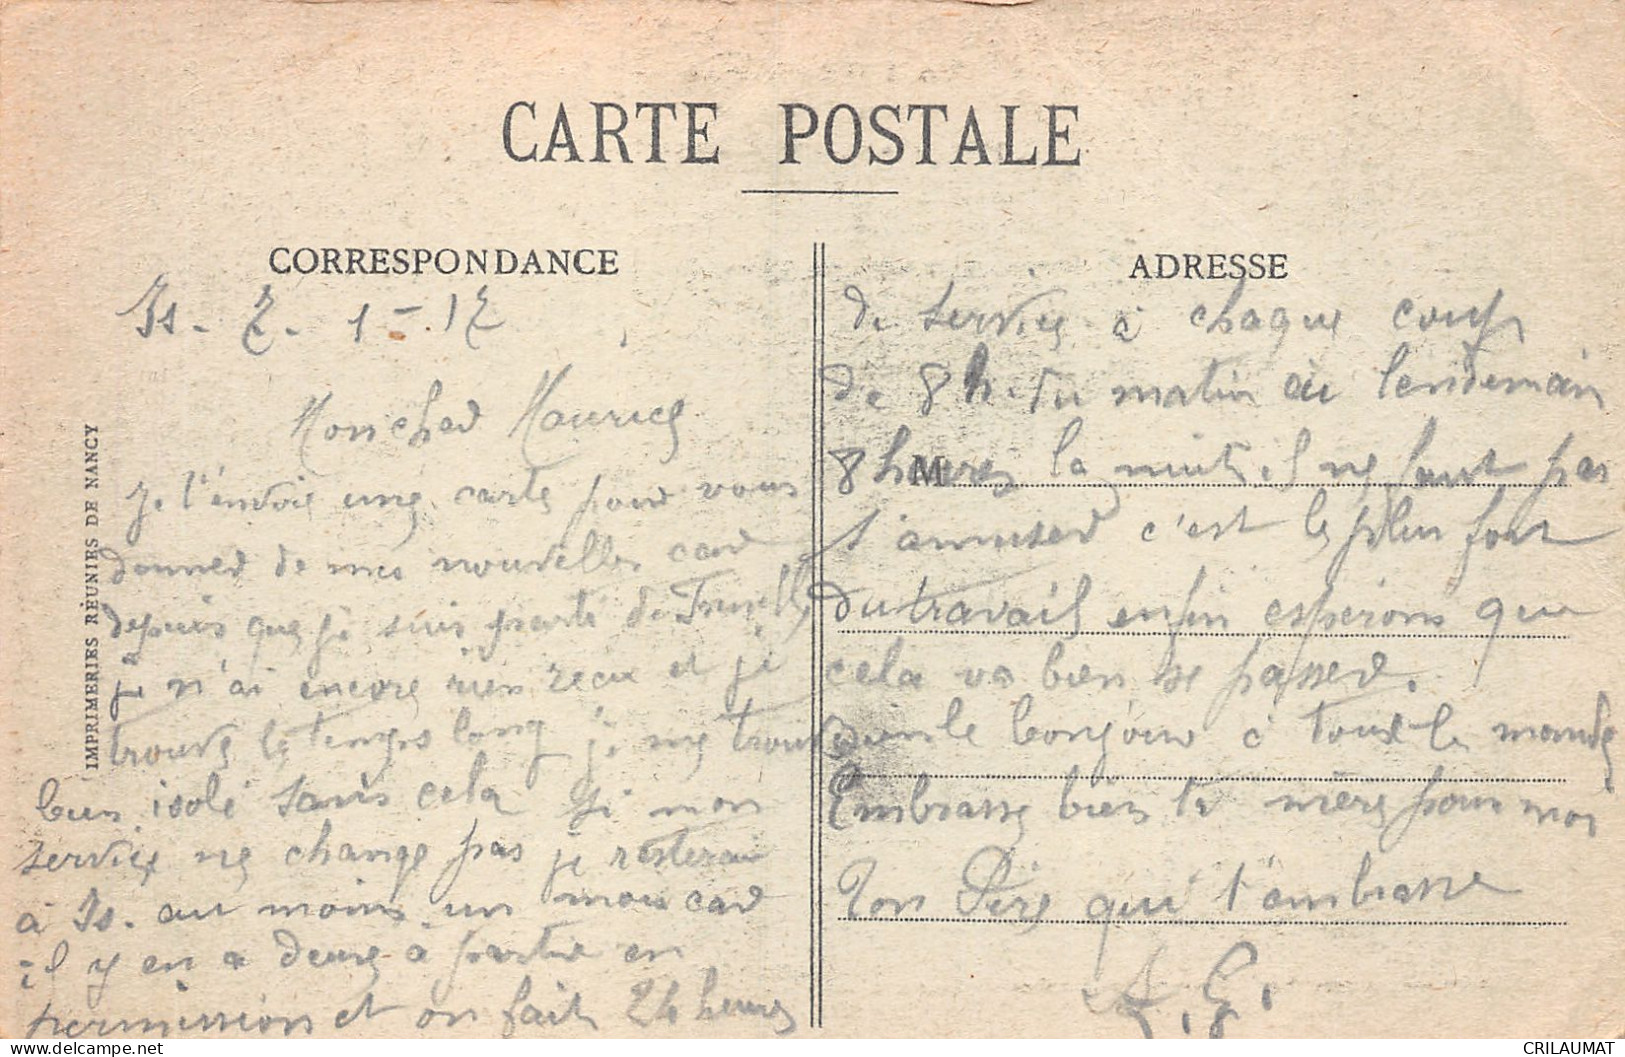 CARTE POSTALE
CORRESPONDANCE
Is. 7. 1-17
Mon cher Maurice
Je t'envoie une carte pour vous
donner de mes nouvelles car
depuis que je suis parti de
je n'ai encore rien reçu et je
trouve le temps long je me trouve
bien isolé sans cela si mon
service ne change pas je resterai
à Is. au moins un mois car
il y en a deux à partir en
permission et on fait 24 heures
ADRESSE
de service à chaque coup
de 8 h. du matin au lendemain
8 heures la nuit il ne faut pas
M
s'amuser c'est le plus fort
du travail enfin esperons que
cela va bien se passer.
le bonjour à tout le monde
Embrasse bien ta mère pour moi
Ton Père qui t'embrasse
IMPRIMERIES RÉUNIES DE NANCY
CRILAUMAT